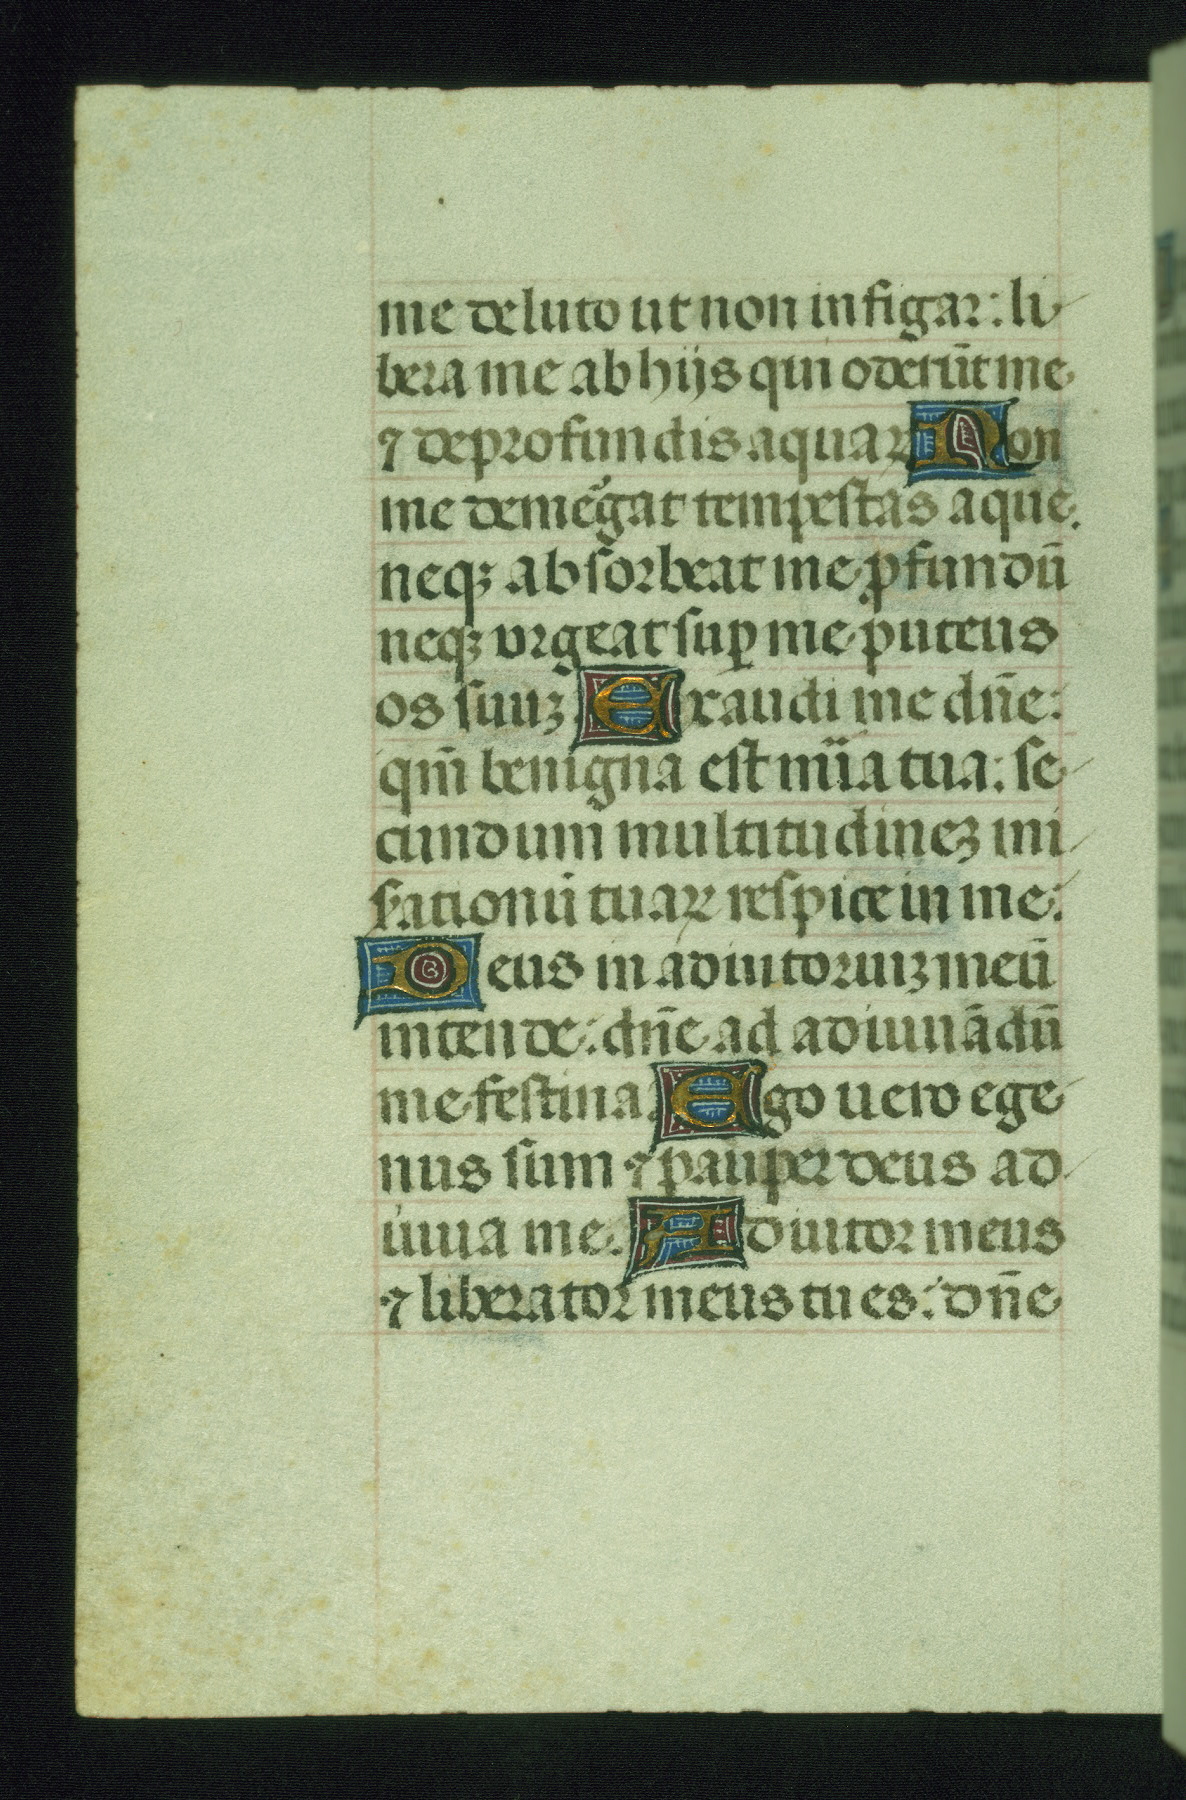 me de luto ut non infigar: li
bera me ab hijs qui oderūt me
⁊ de profundis aquaꝝ Non
me demēgat tempestas aque.
neqꝫ absorbeat me ꝓfundū
neqꝫ vrgeat suꝑ me puteus
os suuꝫ. Exaudi me dn̄e:
qm̄ benigna est mīa tua: se
cundum multitudineꝫ mi
s̄ationū tuaꝝ respice in me:
Deus in adiutoriuꝫ meū
intende: dn̄e ad adiuuādū
me festina. Ego uero ege
nus sum ⁊ pauper deus ad
iuua me. Adiutor meus
⁊ liberator meus tu es: dn̄e